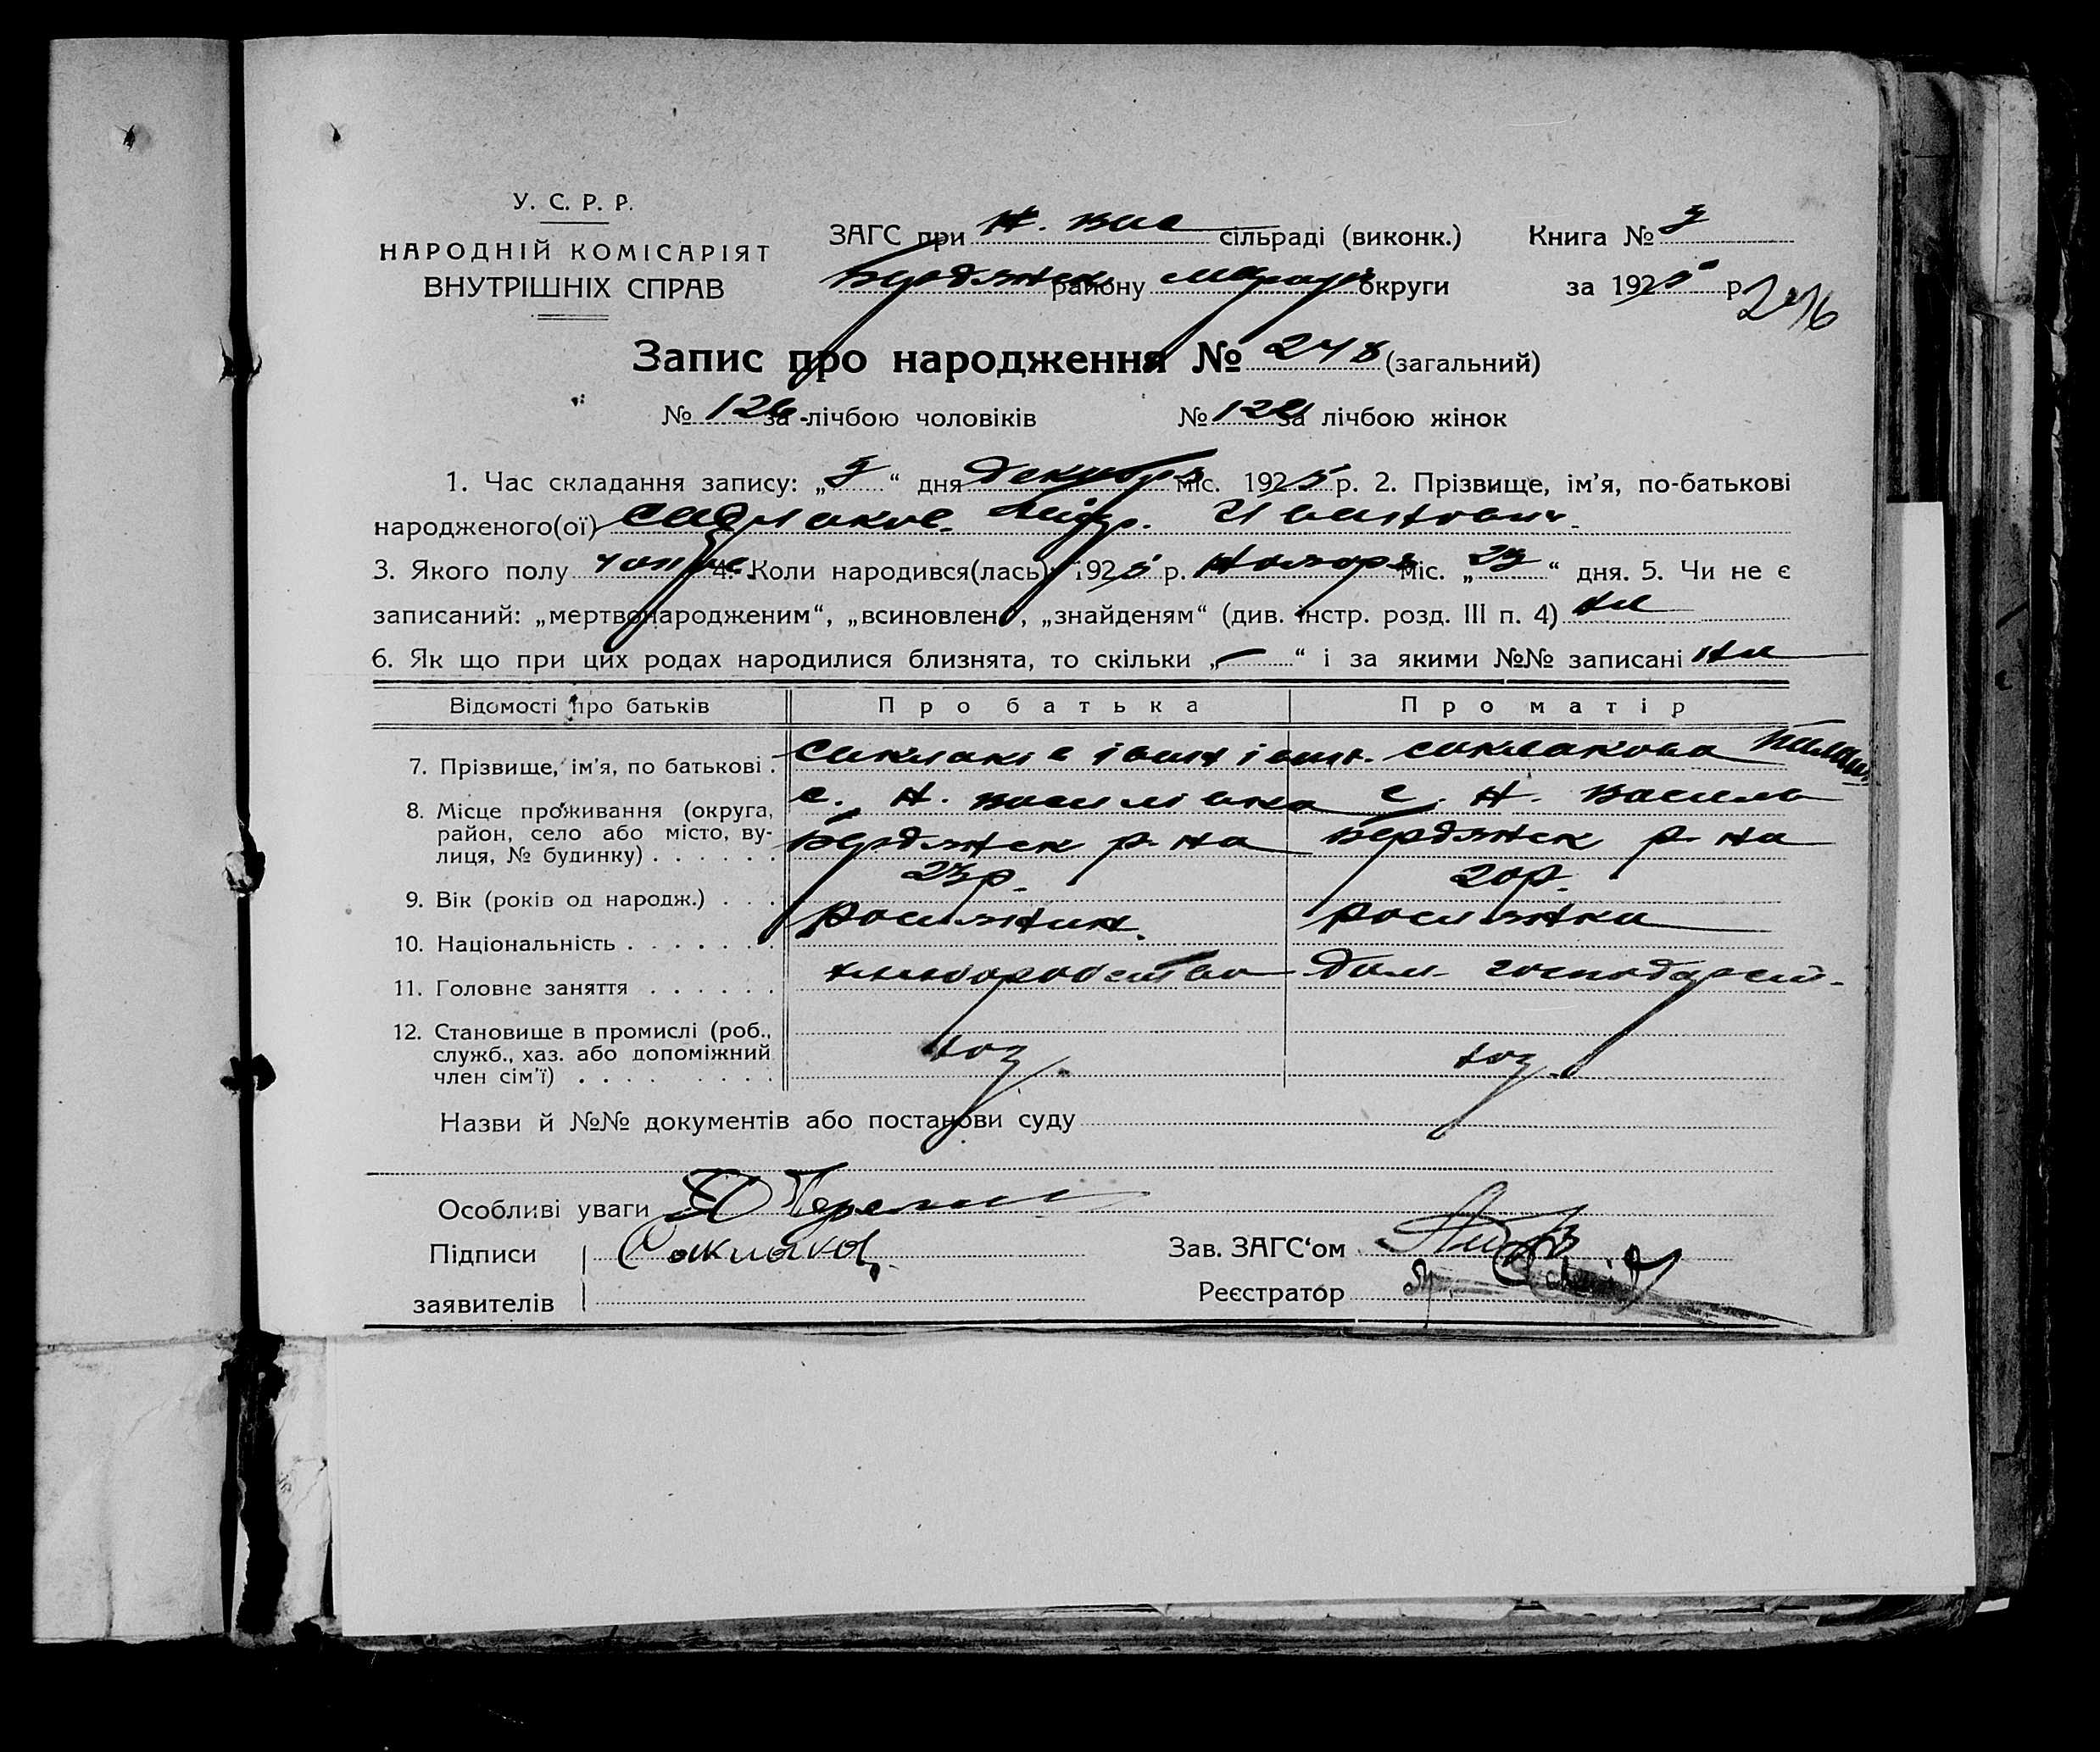 У. С. Р. Р.
НАРОДНІЙ КОМІСАРІЯТ
ВНУТРІШНІХ СПРАВ
ЗАГС при Н. Вас сільраді (виконк.) Книга № 3
Бердянск району округи за 1925 р.
Запис про народження № 248 (загальний)
№ 126 за лічбою чоловіків № за лічбою жінок
1. Час складання запису: „3“ дня Декабря міс. 1925 р. 2. Прізвище, ім'я, по-батькові
народженого(ої) Иванович.
3. Якого полу 4. Коли народився(лась): 1925 р. Ноября міс. „23“ дня. 5. Чи не є
записаний: „мертвонародженим“, „всиновлено, „знайденям“ (див. інстр. розд. III п. 4) ни
6. Як що при цих родах народилися близнята, то скільки „—“ і за якими №№ записані ни
Відомості про батьків Про батька Про матір
7. Прізвище, ім'я, по батькові . Саклаків Іван Іван. Саклакова
8. Місце проживання (округа, с. Н. Василівка с. Н. Василь
район, село або місто, ву-
лиця, № будинку) . . . . . . Бердянск р-на Бердянск р-на
9. Вік (років од народж.) . . . 23 р. 20 р.
10. Національність . . . . . . . Росиянин. Росиянка
11. Головне заняття . . . . . . хлиборобство Дом. господарст.
12. Становище в промислі (роб.,
служб., хаз. або допоміжний хоз. хоз.
член сім'ї) . . . . . . . . .
Назви й №№ документів або постанови суду
Особливі уваги
Підписи Саклаков Зав. ЗАГС‘ом
заявителів Реєстратор